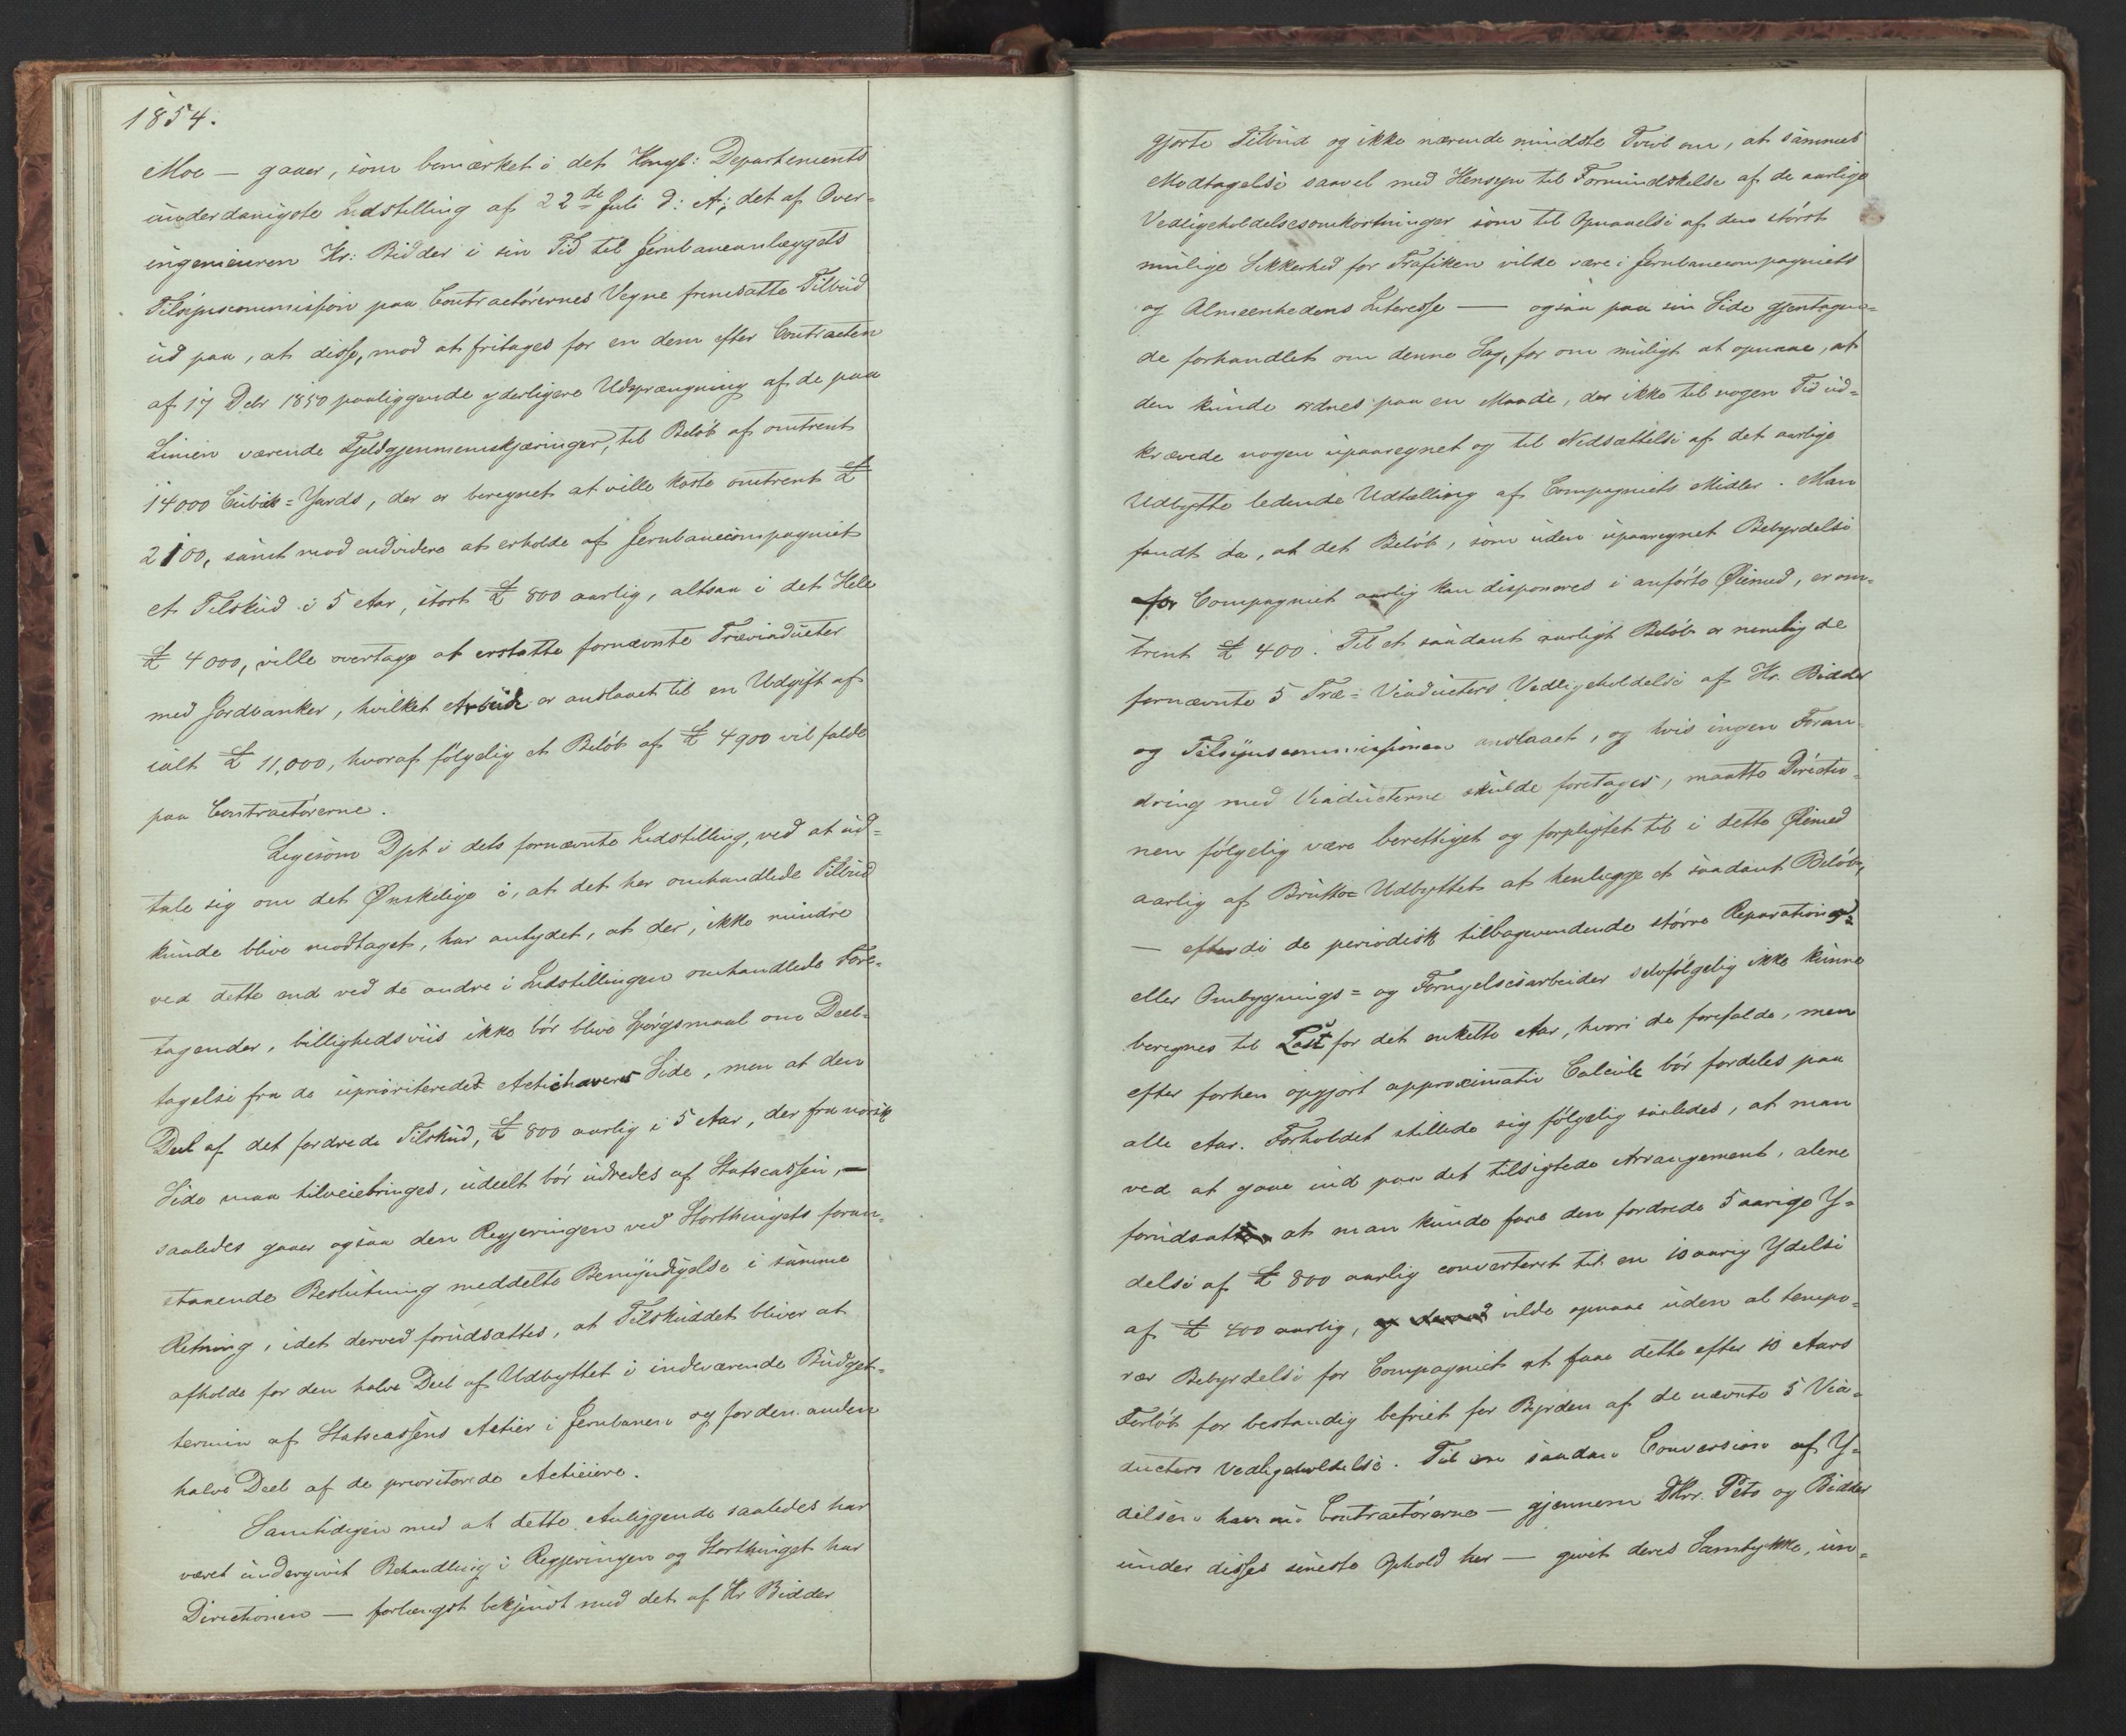 1854.
Moe — gaaer, som bemærket i det Kongl: Departements
underdanigste Indstilling af 22de Juli d: A:, det af Over-
ingenieuren Hr: Bidder i sin Tid til Jernbaneanlæggets
Tilsynscommission paa Contractörernes Vegne fremsatte Tilbud
ud paa, at disse, mod at fritages for en dem efter Contracten
af 17 Debr 1850 paaliggende yderligere Udsprængning af de paa
Linien værende Fjeldgjennemskjæringer, til Beløb af omtrent
14000 Cubik-Yards, der er beregnet at ville koste omtrent £
2100, samt mod endvidere at erholde af Jernbanecompagniet
et Tilskud i 5 Aar, stort £ 800 aarlig, altsaa i det Hele
£ 4000, ville overtage at erstatte fornævnte Træviaducter
med Jordbanker, hvilket Arbeide er anslaaet til en Udgift af
ialt £ 11,000, hvoraf fölgelig et Belöb af £ 4900 vil falde
paa Contractörerne.
Ligesom Dpt i dets fornævnte Indstilling, ved at ud-
tale sig om det Ønskelige i, at det her omhandlede Tilbud
kunde blive modtaget, har antydet, at der, ikke mindre
ved dette end ved de andre i Indstillingen omhandlede Fore-
tagender, billighedsviis ikke bör blive Spörgsmaal om Deel-
tagelse fra de uprioriterede Actiehaveres Side, men at den
Deel af det fordrede Tilskud, £ 800 aarlig i 5 Aar, der fra norsk
Side maa tilveiebringes, udeelt bör udredes af Statscassen, —
saaledes gaaer ogsaa den Regjeringen ved Storthingets foran-
staaende Beslutning meddelte Bemyndigelse i samme
Retning, idet derved forudsættes, at Tilskuddet bliver at
afholde for den halve Deel af Udbyttet i indeværende Budget-
termin af Statscassens Actier i Jernbanen og for den anden
halve Deel af de prioriterede Actieiere.
Samtidigen med at dette Anliggende saaledes har
været undergivet Behandling i Regjeringen og Storthinget har
Directionen — forlængst bekjendt med det af Hr Bidder
gjorte Tilbud og ikke nærende mindste Tvivl om, at sammes
Modtagelse saavel med Hensyn til Formindskelse af de aarlige
Vedligeholdelsesomkostninger som til Opnaaelse af den störst
mulige Sikkerhed for Trafiken vilde være i Jernbanecompagniets
og Almeenhedens Interesse — ogsaa paa sin Side gjentagen-
de forhandlet om denne Sag, for om muligt at opnaae, at
den kunde ordnes paa en Maade, der ikke til nogen Tid ud-
krævede nogen upaaregnet og til Nedsættelse af det aarlige
Udbytte ledende Udtælling af Compagniets Midler. Man
fandt da, at det Belöb, som uden upaaregnet Bebyrdelse
for Compagniet aarlig kan disponeres i anförte Øiemed, er om-
trent £ 400. Til et saadant aarligt Belöb er nemlig de
fornævnte 5 Træ-Viaducters Vedligeholdelse af Hr. Bidder
og Tilsynscommissionen anslaaet, og hvis ingen Foran-
dring med Viaducterne skulde foretages, maatte Directio-
nen fölgelig være berettiget og forpligtet til i dette Øiemed
aarlig af Brutto-Udbyttet at henlægge et saadant Belöb,
— efterdi de periodisk tilbagevendende större Reparations-
eller Ombygnings- og Fornyelsesarbeider selvfölgelig ikke kunne
beregnes til Last for det enkelte Aar, hvori de forefalde, men
efter forhen opgjort approximativ Calcule bör fordeles paa
alle Aar. Forholdet stillede sig fölgelig saaledes, at man
ved at gaae ind paa det tilsigtede Arrangement, alene
forudsat at man kunde faae den fordrede 5 aarige Y-
delse af £ 800 aarlig converteret til en 10 aarig Ydelse
af £ 400 aarlig, vilde opnaae uden al tempo-
rær Bebyrdelse for Compagniet at faae dette efter 10 Aars
Forlöb for bestandig befriet for Byrden af de nævnte 5 Via-
ducters Vedligeholdelse. Til en saadan Conversion af Y-
delsen have nu Contractörerne — gjennem DHrr. Peto og Bidder
under disses seneste Ophold her — givet deres Samtykke, un-